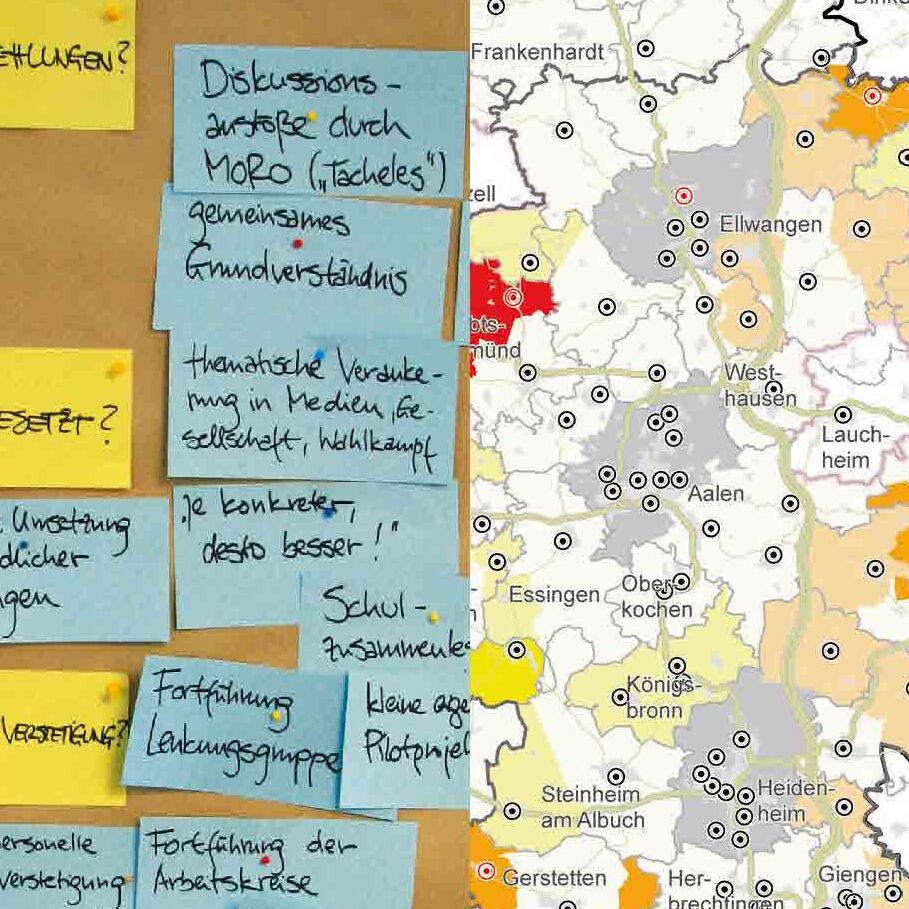 EHLUNGEN?
Diskussions-
anstöße durch
MORO („Tacheles")
gemeinsames
Grundverständnis
thematische Veranke-
rung in Medien, Ge-
sellschaft, Wahlkampf
ESETZT?
Umsetzung
dlicher
gen
„Je konkreter,
desto besser!"
Schul-
zusammenles
VERSTETIGUNG?
Fortführung
Lenkungsgruppe
kleine
Pilotprojek
ersonelle
verstetigung
Fortführung der
Arbeitskreise
Frankenhardt
zell
Ellwangen
münd
West-
hausen
Lauch-
heim
Aalen
Essingen
Ober-
kochen
Königs-
bronn
Steinheim
am Albuch
Heiden-
heim
Gerstetten
Her-
brechtingen
Giengen